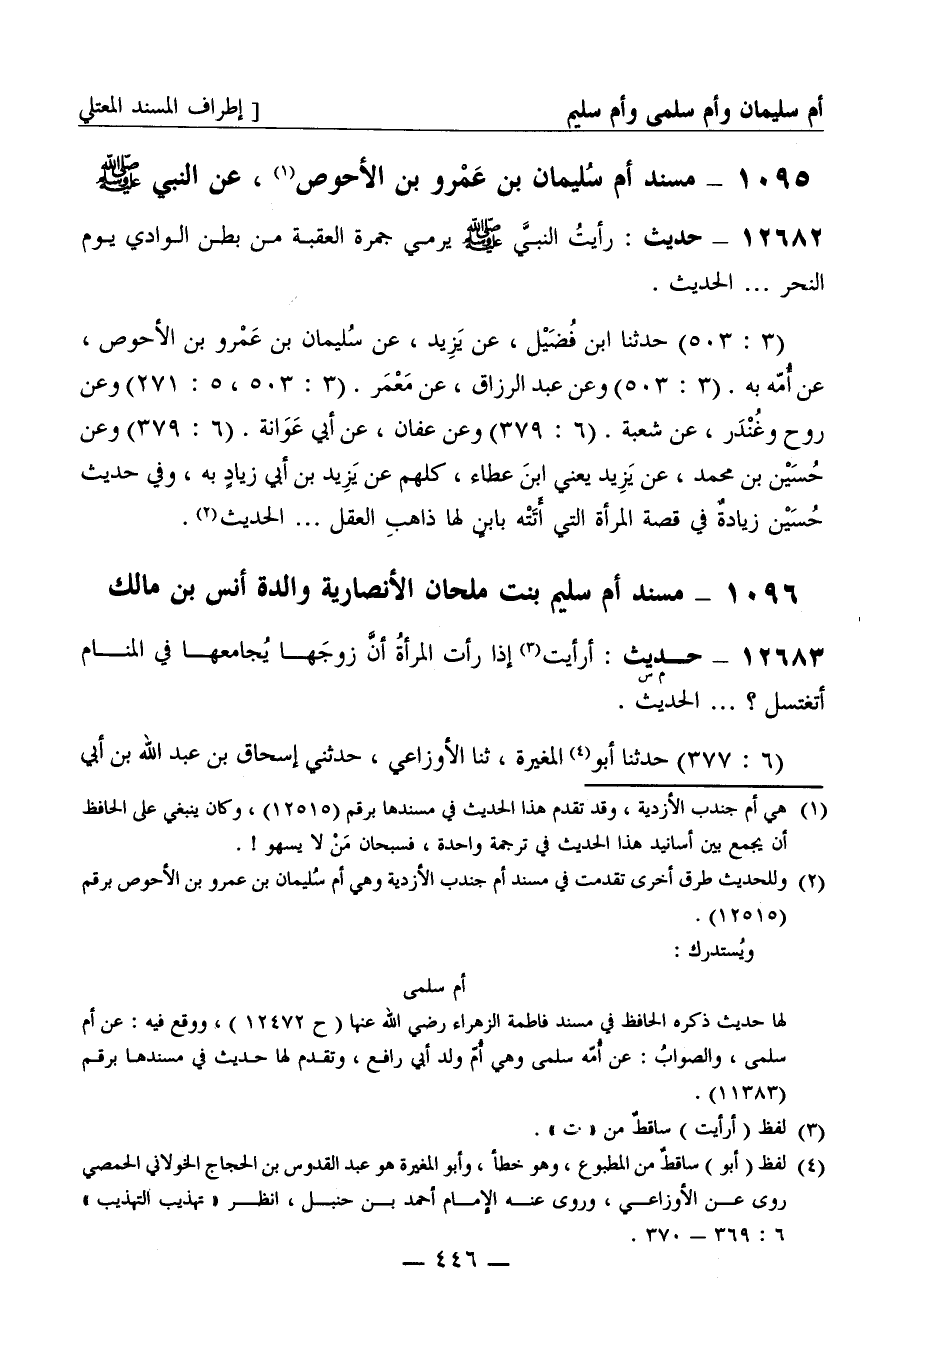 أم سليمان وأم سلمى وأم سليم [ إطراف المسند المعتلي
١٠٩٥ – مسند أم سُليمان بن عَمْرو بن الأحوص(١) ، عن النبي ﷺ
١٢٦٨٢ – حديث : رأيتُ النبيَّ ﷺ يرمي جمرة العقبة من بطن الوادي يوم
النحر ... الحديث .
(٣ : ٥٠٣) حدثنا ابن فُضَيْل ، عن يَزيد ، عن سُليمان بن عَمْرو بن الأحوص ،
عن أُمّه به . (٣ : ٥٠٣) وعن عبد الرزاق ، عن مَعْمَر . (٣ : ٥٠٣ ، ٥ : ٢٧١) وعن
روح وغُنْدَر ، عن شعبة . (٦ : ٣٧٩) وعن عفان ، عن أبي عَوَانة . (٦ : ٣٧٩) وعن
حُسَيْن بن محمد ، عن يَزيد يعني ابنَ عطاء ، كلهم عن يَزيد بن أبي زيادٍ به ، وفي حديث
حُسَيْن زيادةٌ في قصة المرأة التي أَتَتْه بابنٍ لها ذاهبِ العقل ... الحديث(٢) .
١٠٩٦ – مسند أم سليم بنت ملحان الأنصارية والدة أنس بن مالك
١٢٦٨٣ – حـــديث : أرأيت(٣) إذا رأت المرأةُ أنَّ زوجَهـــا يُجامعهـــا في المنـــام
م س
أتغتسل ؟ ... الحديث .
(٦ : ٣٧٧) حدثنا أبو(٤) المغيرة ، ثنا الأوزاعي ، حدثني إسحاق بن عبد الله بن أبي
(١) هي أم جندب الأزدية ، وقد تقدم هذا الحديث في مسندها برقم (١٢٥١٥) ، وكان ينبغي على الحافظ
أن يجمع بين أسانيد هذا الحديث في ترجمة واحدة ، فسبحان مَنْ لا يسهو ! .
(٢) وللحديث طرق أخرى تقدمت في مسند أم جندب الأزدية وهي أم سُليمان بن عمرو بن الأحوص برقم
(١٢٥١٥) .
ويُستدرك :
أم سلمى
لها حديث ذكره الحافظ في مسند فاطمة الزهراء رضي الله عنها ( ح ١٢٤٧٢ ) ، ووقع فيه : عن أم
سلمى ، والصوابُ : عن أُمّه سلمى وهي أُمّ ولد أبي رافع ، وتقدم لها حديث في مسندها برقم
(١١٣٨٣) .
(٣) لفظ ( أرأيت ) ساقطٌ من « ت » .
(٤) لفظ ( أبو ) ساقطٌ من المطبوع ، وهو خطأ ، وأبو المغيرة هو عبد القدوس بن الحجاج الخولاني الحمصي
روى عـــن الأوزاعـــي ، وروى عنـــه الإمـــام أحمد بـــن حنبـــل ، انظـــر « تهذيب التهذيب »
٦ : ٣٦٩ – ٣٧٠ .
— ٤٤٦ —